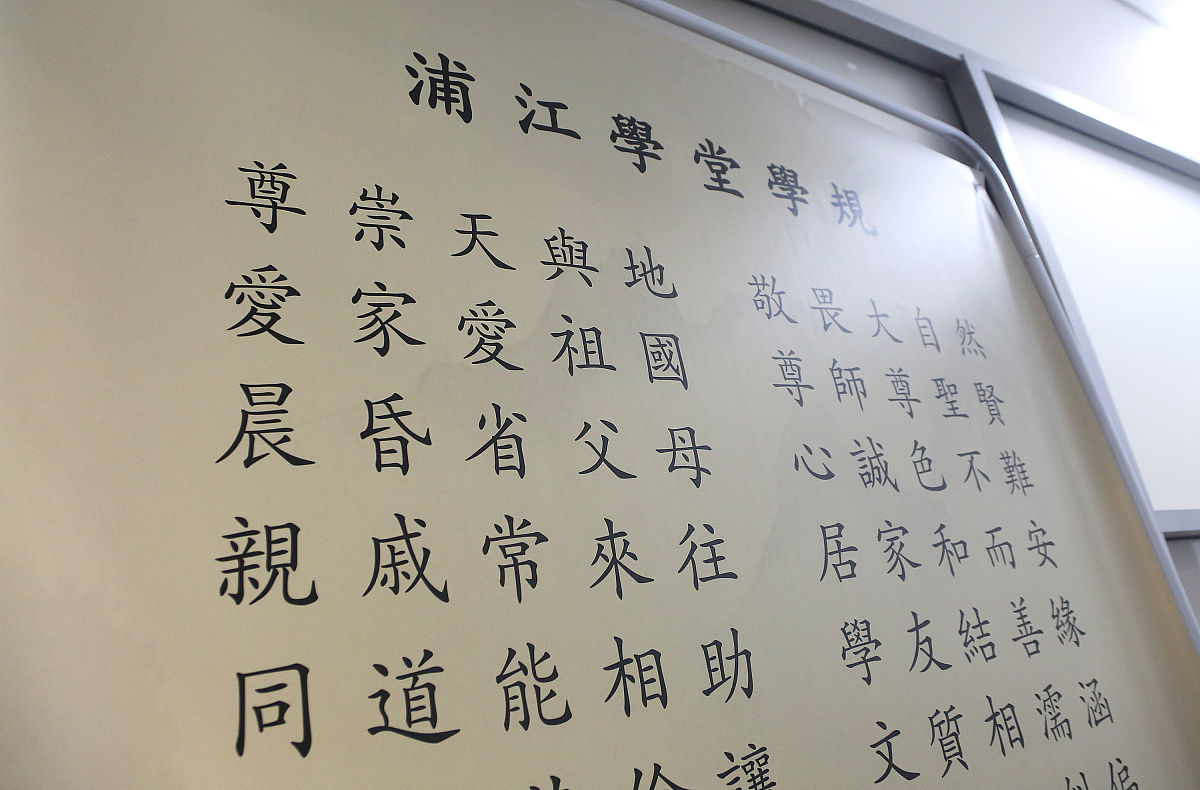 浦江學堂學規
尊崇天與地 敬畏大自然
愛家愛祖國 尊師尊聖賢
晨昏省父母 心誠色不難
親戚常來往 居家和而安
同道能相助 學友結善緣
讓 文質相濡涵